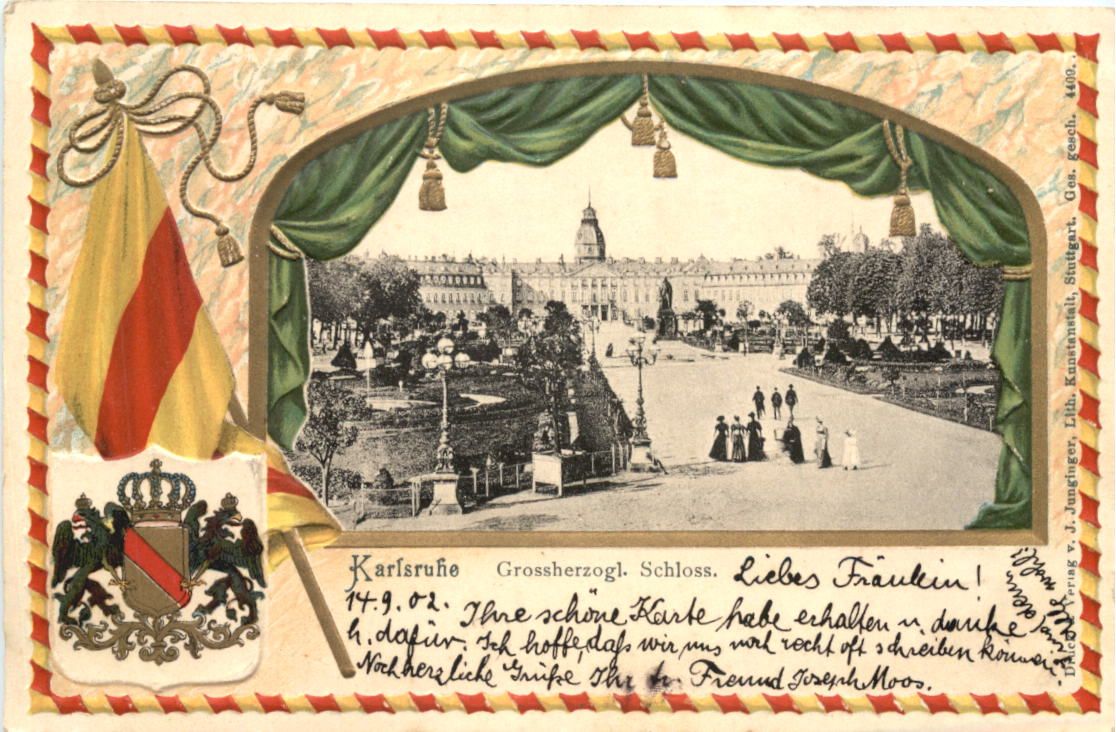 Karlsruhe Grossherzogl. Schloss.
Liebes Fräulein!
14.9.02. Ihre schöne Karte habe erhalten u. danke
h. dafür. Ich hoffe, daß wir uns noch recht oft schreiben können.
Noch herzliche Grüße Ihr Freund Joseph Moos.
Verlag v. J. Junginger, Lith. Kunstanstalt, Stuttgart. Ges. gesch. 4409.